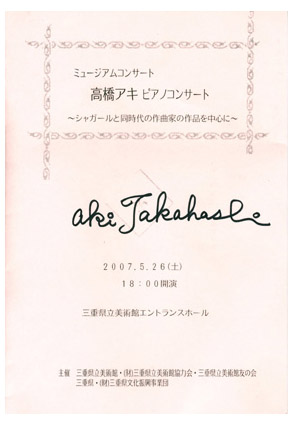 ミュージアムコンサート
高橋アキ ピアノコンサート
～シャガールと同時代の作曲家の作品を中心に～
aki Takahashi
2007.5.26(土)
18:00開演
三重県立美術館エントランスホール
主催 三重県立美術館・(財)三重県立美術館協力会・三重県立美術館友の会
三重県・(財)三重県文化振興事業団